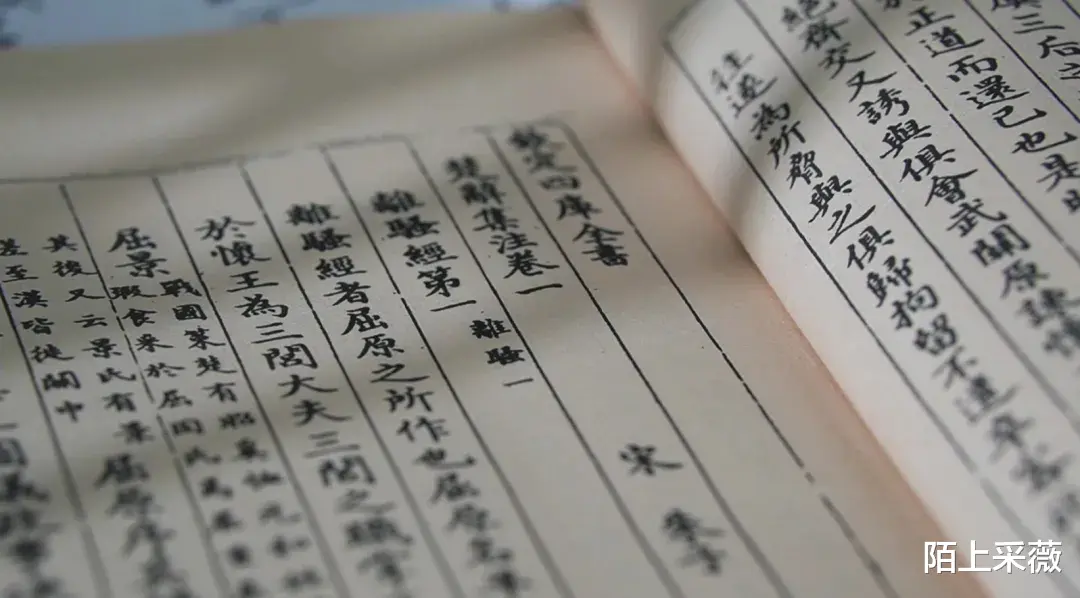 三后之
於正道而還己也是時
絕齊交又誘與俱會武關原諫懷
往遂為所脅與之俱歸拘留不遣卒
欽定四庫全書
楚辭集注卷一 宋 朱子
離騷經第一 離騷一
離騷經者屈原之所作也屈原名
於懷王為三閭大夫三閭之職掌
屈景
戰國策楚有昭奚恤元和
瑕食采於屈因氏焉屈重
其後又云景氏有景
差至漢皆徙關中
屈原序其
圖議政事